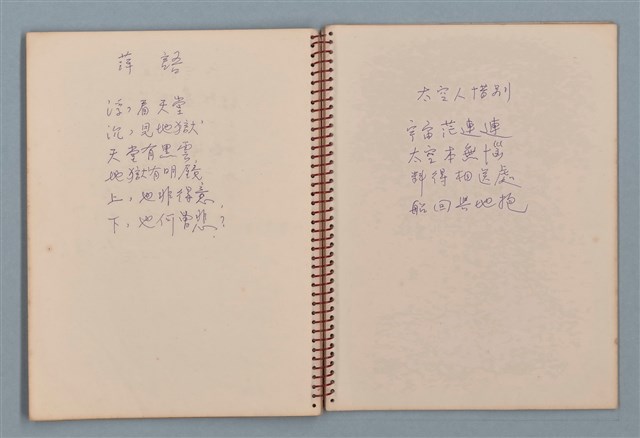 萍語
浮，看天堂
沉，見地獄
天堂有黑雲，
地獄有明鏡，
上，也非得意，
下，也何曾悲？
太空人惜別
宇宙茫連連
太空本無惱
料得相送處
船回與地抱